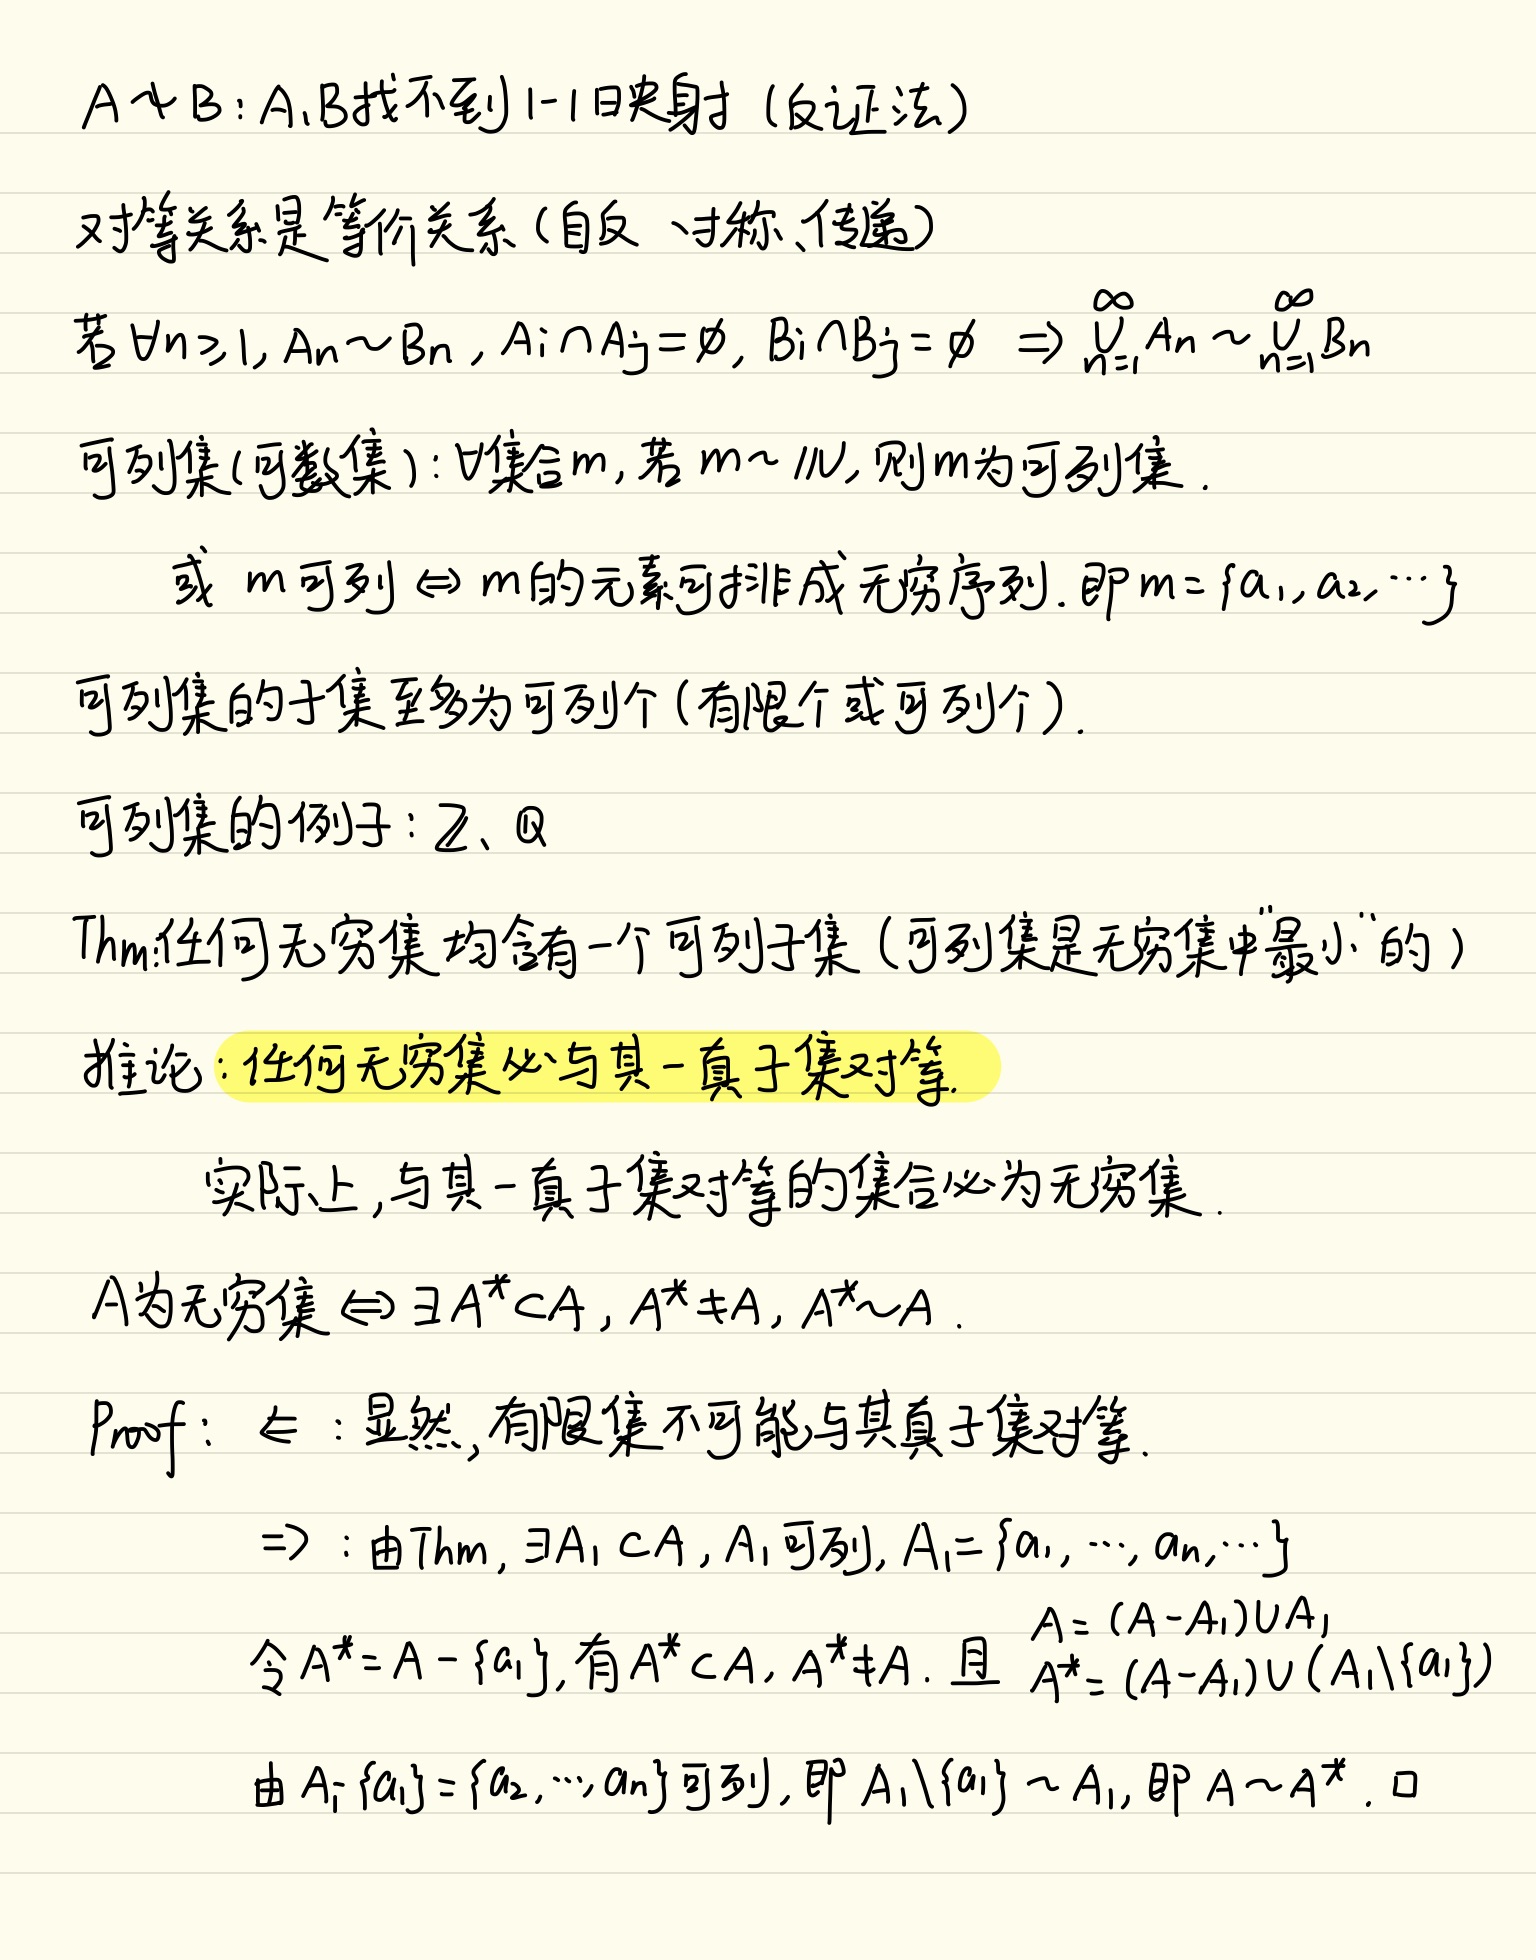 A≁B：A、B找不到1-1映射（反证法）
对等关系是等价关系（自反、对称、传递）
若∀n≥1, An~Bn, Ai∩Aj=∅, Bi∩Bj=∅ ⇒ ∞∪n=1 An ~ ∞∪n=1 Bn
可列集(可数集)：∀集合m, 若m~ℕ, 则m为可列集.
或 m可列⇔m的元素可排成无穷序列. 即m={a1, a2, ⋯}
可列集的子集至多为可列个(有限个或可列个).
可列集的例子：ℤ、ℚ
Thm:任何无穷集均含有一个可列子集（可列集是无穷集中"最小"的）
推论：任何无穷集必与其一真子集对等.
实际上,与其一真子集对等的集合必为无穷集.
A为无穷集⇔∃A*⊂A, A*≠A, A*~A.
Proof: ⇐：显然,有限集不可能与其真子集对等.
⇒：由Thm, ∃A1⊂A, A1可列, A1={a1, ⋯, an, ⋯}
令A*=A-{a1}, 有A*⊂A, A*≠A. 且 A=(A-A1)∪A1
A*=(A-A1)∪(A1\{a1})
由A1-{a1}={a2, ⋯, an}可列, 即A1\{a1}~A1, 即A~A*. □